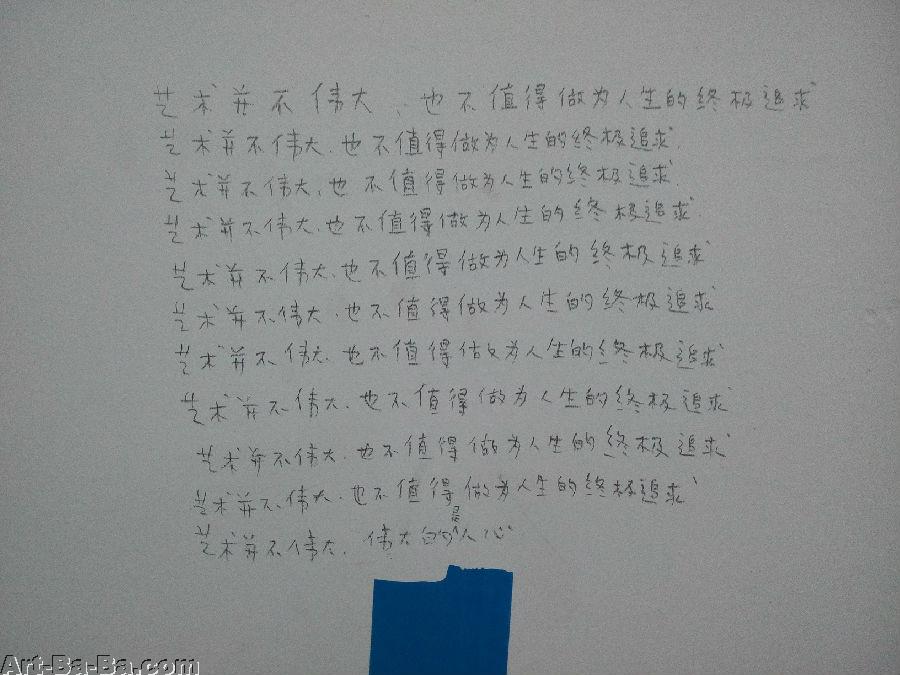 艺术并不伟大，也不值得做为人生的终极追求
艺术并不伟大，也不值得做为人生的终极追求
艺术并不伟大，也不值得做为人生的终极追求
艺术并不伟大，也不值得做为人生的终极追求
艺术并不伟大，也不值得做为人生的终极追求
艺术并不伟大，也不值得做为人生的终极追求
艺术并不伟大，也不值得做为人生的终极追求
艺术并不伟大，也不值得做为人生的终极追求
艺术并不伟大，也不值得做为人生的终极追求
艺术并不伟大，也不值得做为人生的终极追求
艺术并不伟大，伟大的是人心
Art-Ba-Ba.com